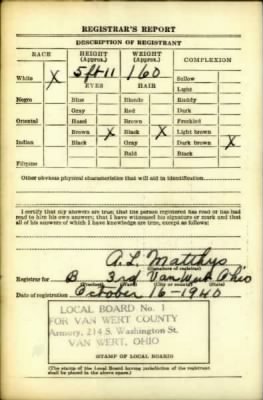 REGISTRAR'S REPORT
DESCRIPTION OF REGISTRANT
RACE HEIGHT (Approx.) WEIGHT (Approx.) COMPLEXION
White X 5 ft 11 160 Sallow
EYES HAIR Light
Negro Blue Blonde Ruddy
Gray Red Dark
Oriental Hazel Brown Freckled
Brown X Black X Light brown
Indian Black Gray Dark brown X
Bald Black
Filipino
Other obvious physical characteristics that will aid in identification
I certify that my answers are true; that the person registered has read or has had
read to him his own answers; that I have witnessed his signature or mark and that
all of his answers of which I have knowledge are true, except as follows:
A. L. Matthys
(Signature of registrar)
Registrar for B 3rd Van Wert Ohio
(Precinct) (Ward) (City or county) (State)
Date of registration October 16-1940
LOCAL BOARD No. 1
FOR VAN WERT COUNTY
Armory, 214 S. Washington St.
VAN WERT, OHIO
STAMP OF LOCAL BOARD
(The stamp of the Local Board having jurisdiction of the registrant
shall be placed in the above space.)